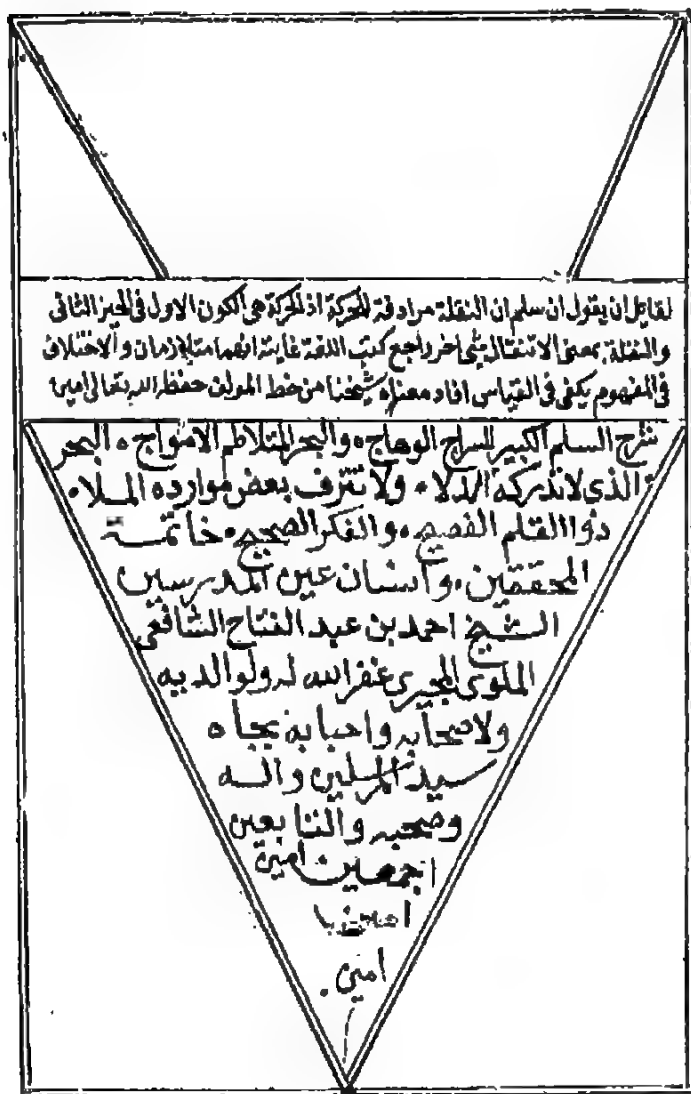 لقايل ان يقول ان سلم ان النقلة مرادفة للحركة اذ الحركة هي الكون الاول في الحيز الثاني
والنقلة بمعنى الانتقال شي اخر راجع كتب اللغة غايته انهما متلازمان والاختلاف
في المفهوم يكفي في القياس افاد معناه شيخنا من خط المولف حفظه الله تعالى امين
شرح السلم الكبير للسراج الوهاج والبحر المتلاطم الامواج البحر
الذي لا تدركه الدلاء ولا تنزف بعض موارده الملاء
ذو القلم الفصيح والفكر الصحيح خاتمة
المحققين وانسان عين المدرسين
الشيخ احمد بن عبد الفتاح الشافعي
الملوي المجيري غفر الله له ولوالديه
ولاصحابه واحبابه بجاه
سيد المرسلين واله
وصحبه والتابعين
اجمعين امين
امين يا
امين